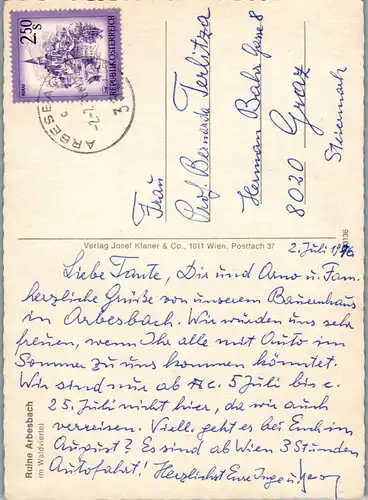 2.50
S
REPUBLIK ÖSTERREICH
ARBESBA
Frau
Prof. Bernarda Terlitza
Herman Bahr Gasse 8
8020 Graz
Steiermark
Verlag Josef Klaner & Co., 1011 Wien, Postfach 37
2. Juli 1976
Liebe Tante, Dir und Arno u. Fam.
herzliche Grüße von unserem Bauernhaus
in Arbesbach. Wir würden uns sehr
freuen, wenn Ihr alle mit Auto im
Sommer zu uns kommen könntet.
Wir sind nur ab c. 5 Juli bis c.
25. Juli nicht hier, da wir auch
verreisen. Viell. geht es bei Euch im
August? Es sind ab Wien 3 Stunden
Autofahrt! Herzlichst Eure Inge u.
Ruine Arbesbach
im Waldviertel